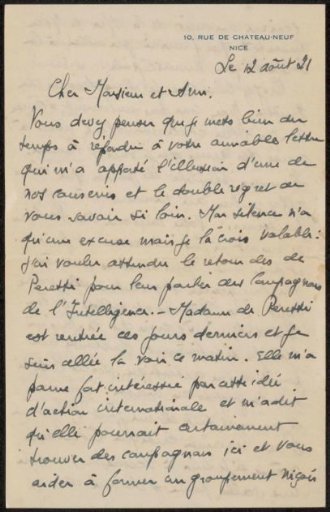 10, RUE DE CHATEAU-NEUF
NICE
Le 12 août 21
Cher Monsieur et Ami.
Vous devez penser que je mets bien du
temps à répondre à votre aimable lettre
qui m'a apporté l'illusion d'une de
nos causeries et le double regret de
vous savoir si loin. Mon silence n'a
qu'une excuse mais je la crois valable:
j'ai voulu attendre le retour des de
Peretti pour leur parler des Compagnons
de l'Intelligence. - Madame de Peretti
est rentrée ces jours derniers et je
suis allée la voir ce matin. Elle m'a
paru fort intéressée par cette idée
d'action internationale et m'a dit
qu'elle pourrait certainement
trouver des compagnons ici et vous
aider à former un groupement niçois